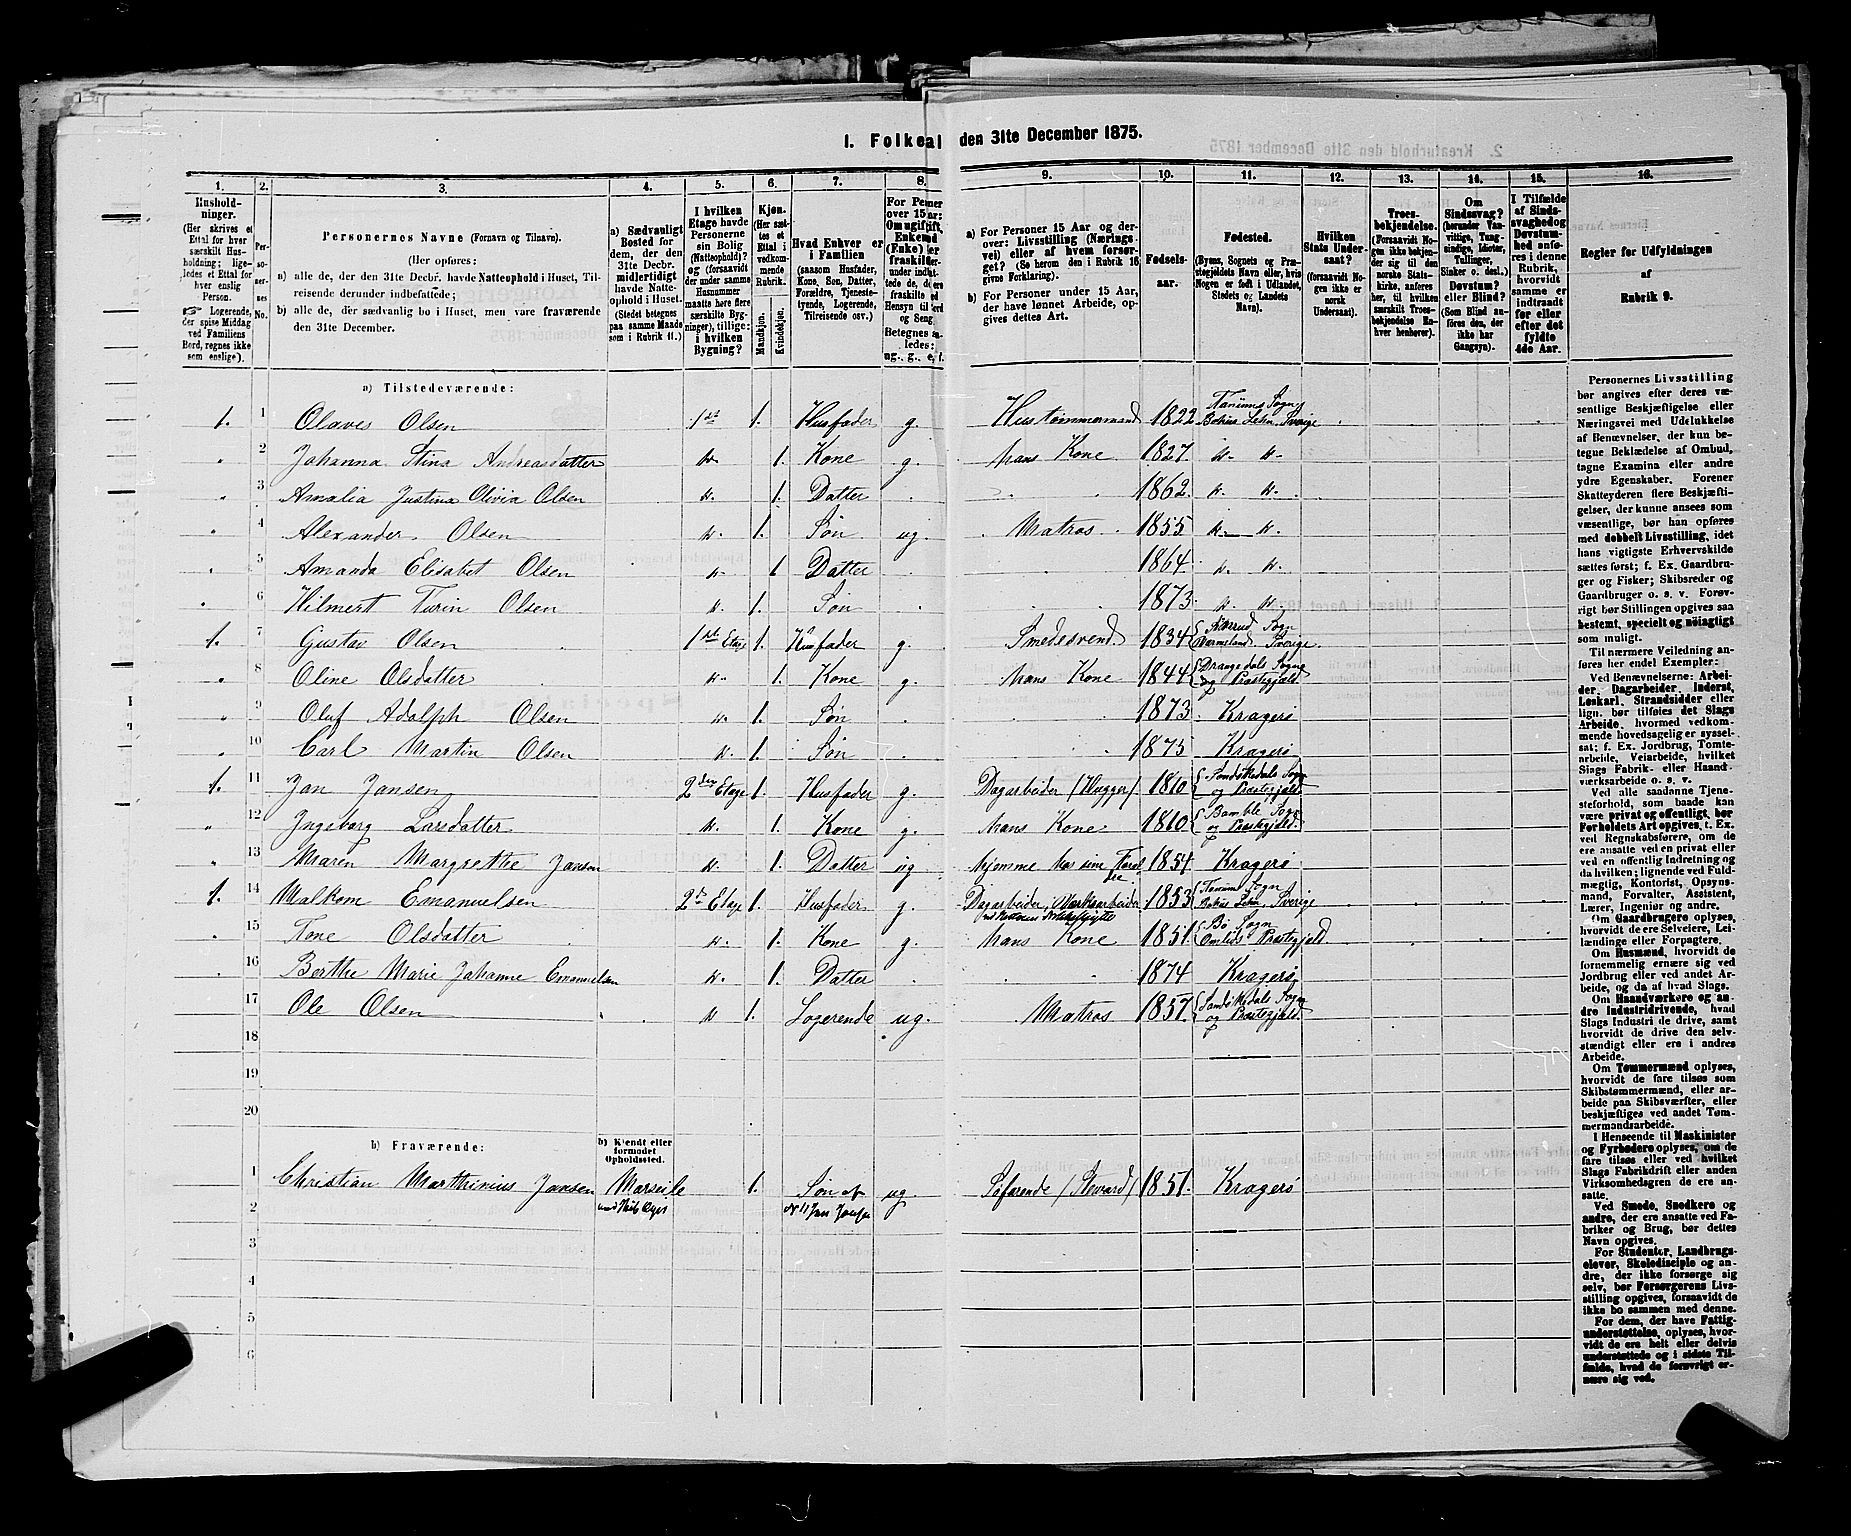 1. Folketal den 31te December 1875.
2. Kreaturhold den 31te December 1875
1. 2. 3. 4. 5. 6. 7. 8. 9. 10. 11. 12. 13. 14. 15. 16.
Husholdninger.
(Her skrives et
Ettal for hver
særskilt Husholdning;
ligeledes et Ettal for
hver enslig
Person.
☞ Logerende,
der spise Middag
ved Familiens
Bord, regnes ikke
som enslige).
Personernes No.
Personernes Navne (Fornavn og Tilnavn).
(Her opføres:
a) alle de, der den 31te Decbr. havde Natteophold i Huset, Tilreisende
derunder indbefattede;
b) alle de, der sædvanlig bo i Huset, men vare fraværende
den 31te December.
a) Sædvanligt
Bosted for
dem, der den
31te Decbr.
midlertidigt
havde Natteophold
i Huset.
(Stedet betegnes
paa samme Maade
som i Rubrik 11.)
I hvilken
Etage havde
Personerne
sin Bolig
(Natteophold)?
og (forsaavidt
der under samme
Husnummer
maatte høre flere
særskilte Bygninger),
tillige:
i hvilken
Bygning?
Kjøn.
(Her sættes
et
Ettal i
vedkommende
Rubrik.
Mandkjøn.
Kvindekjøn.
Hvad Enhver er
i Familien
(saasom Husfader,
Kone, Søn, Datter,
Forældre, Tjenestetyende,
Logerende,
Tilreisende osv.)
a) For Personer 15 Aar og derover:
Livsstilling (Næringsvei)
eller af hvem forsørget?
(Se herom den i Rubrik 16
givne Forklaring).
b) For Personer under 15 Aar,
der have lønnet Arbeide, opgives
dettes Art.
Fødselsaar.
Fødested.
(Byens, Sognets og Præstegjældets
Navn eller, hvis
Nogen er født i Udlandet,
Stedets og Landets
Navn).
Hvilken
Stats Undersaat?
(forsaavidt Nogen
ikke er
norsk
Undersaat).
Troesbekjendelse.
(Forsaavidt Nogen
ikke bekjender
sig til den
norske Statskirke,
anføres
her, til hvilken
særskilt Troesbekjendelse
Enhver
henhører).
Om
Sindssvag?
(herunder Vanvittige,
Tungsindige,
Idioter,
Tullinger,
Sinker o. desl.)
Døvstum?
eller Blind?
(Som Blind anføres
den, der
ikke har
Gangsyn).
I Tilfælde
af Sindssvaghed
og
Døvstumhed
anføres
i denne
Rubrik,
hvorvidt
samme er
indtraadt
før eller
efter det
fyldte
4de Aar.
Regler for Udfyldningen
af
Rubrik 9.
a) Tilstedeværende:
1. 1 Olaves Olsen 1st 1. Husfader g. Hustømmermand 1822 Tanums Sogn Bohus Lehn Sverige
2 Johanna Stina Andreasdatter 1. Kone g. hans Kone 1827
3 Amalia Justina Olivia Olsen 1. Datter 1862
4 Alexander Olsen 1. Søn ug. Matros 1855
5 Amanda Elisabet Olsen 1 Datter 1864
6 Hilmert Turin Olsen 1. Søn 1873
1. 7 Gustav Olsen 1st Etage 1. Husfader g. Smedesvend 1834 Sogn Wermeland Sverige
8 Oline Olsdatter 1. Kone g. hans Kone 1844 Drangedals Sogn og Præstegjæld
9 Oluf Adolph Olsen 1. Søn 1873 Kragerø
10 Carl Martin Olsen 1. Søn 1875 Kragerø
1. 11 Jan Jansen 2den Etage 1. Husfader g. Dagarbeider (Hugger) 1810 Sandøkedals Sogn og Præstegjæld
12 Ingeborg Larsdatter 1. Kone g. hans Kone 1810 Bamble Sogn og Præstegjæld.
13 Maren Margrethe Jansen 1. Datter ug hjemme hos sine Forældre 1854 Kragerø
1. 14 Malkom Emanuelsen 2d Etage 1. Husfader g. Dagarbeider, 1853 Tanum Sogn Bohus Lehn, Sverige
15 Tone Olsdatter 1. Kone g. hans Kone 1851. Bø Sogn Præstegjæld
16 Berthe Marie Johanne Emanuelsen 1. Datter 1874 Kragerø
17 Ole Olsen 1. Logerende ug. Matros 1857. Sandøkedals Sogn og Præstegjæld.
18
19
20
b) Fraværende:
b) Kjendt eller
formodet
Opholdssted.
1 Christian Marthinius Jansen Marseile 1. Søn af No 11 Jan Jansen ug Søfarende (Steward) 1851. Kragerø
2
3
4
5
6
Personernes Livsstilling
bør angives efter deres væsentlige
Beskjæftigelse eller
Næringsvei med Udelukkelse
af Benævnelser, der kun betegne
Beklædelse af Ombud,
tagne Examina eller andre
ydre Egenskaber. Forener
Skatteyderen flere Beskjæftigelser,
der kunne ansees som
væsentlige, bør han opføres
med dobbelt Livsstilling, idet
hans vigtigste Erhvervskilde
sættes først; f. Ex. Gaardbruger
og Fisker; Skibsreder og
Gaardbruger o. s. v. Forøvrigt
bør Stillingen opgives saa
bestemt, specielt og nöiagtigt
som muligt.
Til nærmere Veiledning anføres
her endel Exempler:
Ved Benævnelserne: Arbeider,
Dagarbeider, Inderst,
Løskarl, Strandsidder eller
lign. bør tilføies det Slags
Arbeide, hvormed vedkommende
hovedsagelig er sysselsat;
f. Ex. Jordbrug, Tomtearbeide,
Veiarbeide, hvilket
Slags Fabrik- eller Haandværksarbeide
o. s. v.
Ved alle saadanne Tjenesteforhold,
som baade kan
være privat og offentligt, bør
Forholdets Art opgives, f. Ex.
ved Regnskabsførere, om de
ere ansatte ved en privat eller
ved en offentlig Indretning og
da hvilken; lignende ved Fuldmægtig,
Kontorist, Opsynsmand,
Forvalter, Assistent,
Lærer, Ingeniør og andre.
Om Gaardbrugere oplyses,
hvorvidt de ere Selveiere, Leilændinge
eller Forpagtere.
Om Husmænd, hvorvidt de
fornemmelig ernære sig ved
Jordbrug eller ved andet Arbeide,
og da af hvad Slags.
Om Haandværkere og andre
Industridrivende, hvad
Slags Industri de drive, samt
hvorvidt de drive den selvstændigt
eller ere i andres
Arbeide.
Om Tømmermænd oplyses,
hvorvidt de fare tilsøs som
Skibstømmermænd, eller arbeide
paa Skibsværfter, eller
beskjæftiges ved andet Tømmermandsarbeide.
I Henseende til Maskinister
og Fyrbødere oplyses, om de
fare tilsøs eller ved hvilket
Slags Fabrikdrift eller anden
Virksomhedsgren de ere ansatte.
Ved Smede, Snedkere og
andre, der ere ansatte ved Fabriker
og Brug, bør dettes
Navn opgives.
For Studenter, Landbrugselever,
Skoledisciple og andre,
der ikke forsørge sig
selv, bør Forsørgerens Livsstilling
opgives, forsaavidt de
ikke bo sammen med denne.
For dem, der have Fattigunderstøttelse,
oplyses, hvorvidt
de ere helt eller delvis
understøttede og i sidste Tilfælde,
hvad de forøvrigt ernære
sig ved.